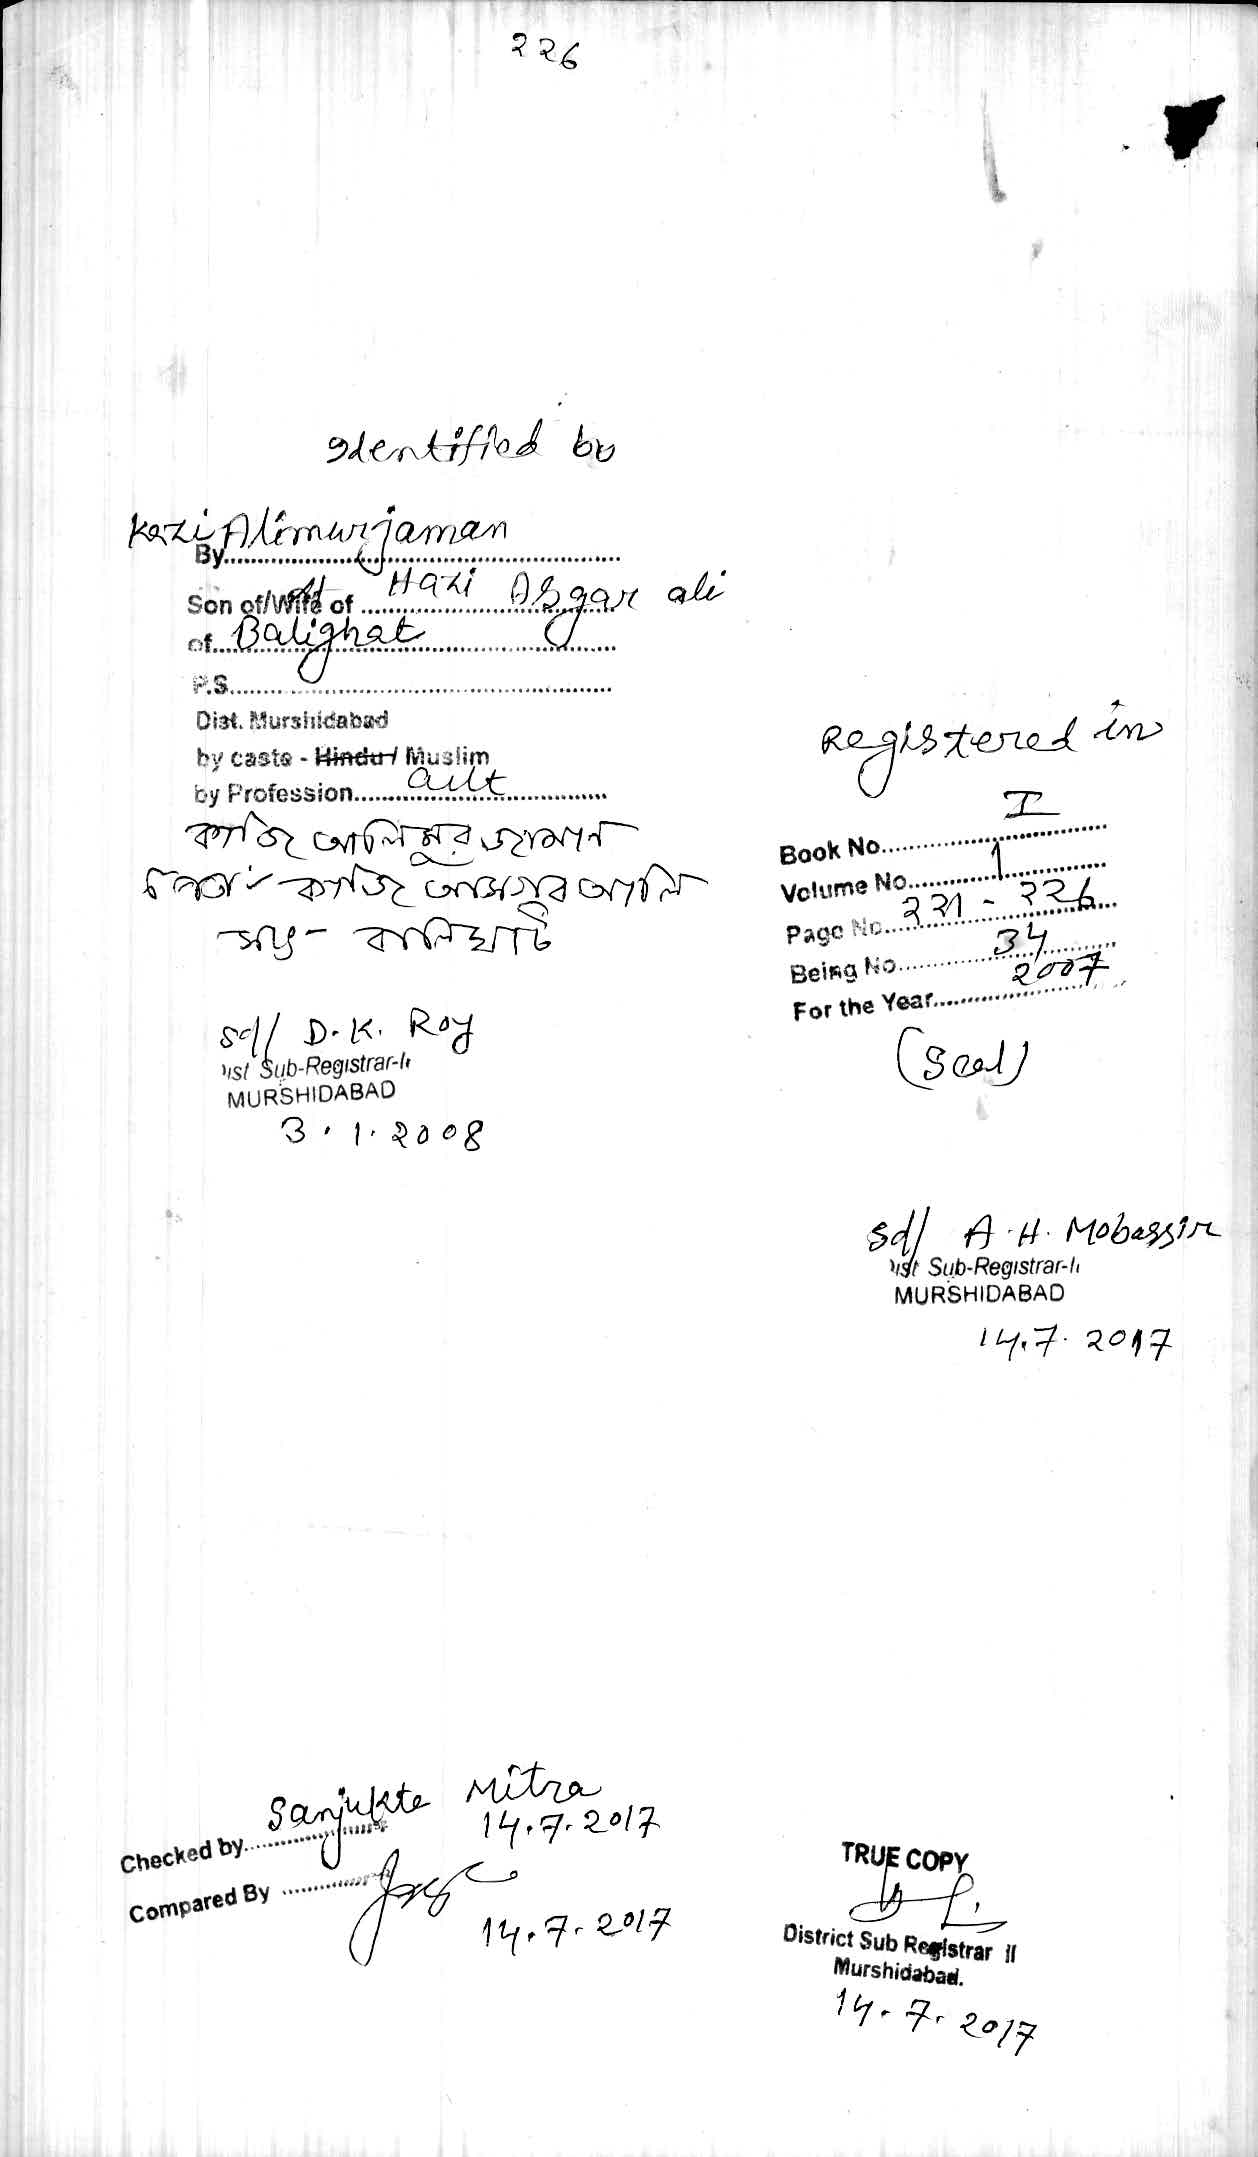 226
Identified by
Kazi Alimurjaman
By
Son of/Wife of Lt Hazi Asgar ali
of Balighat
P.S.
Dist. Murshidabad
by caste - Hindu / Muslim
by Profession cult
কাজি আলিমুর জামান
পিতা - কাজি আসগর আলি
সাং - বালিঘাট
sd/ D. K. Roy
Dist Sub-Registrar-II
MURSHIDABAD
3.1.2008
Registered in
Book No. I
Volume No. 1
Page No. 221 - 226
Being No. 34
For the Year 2007
(Seal)
sd/ A. H. Mobassir
Dist Sub-Registrar-II
MURSHIDABAD
14.7.2017
Checked by Sanjukta Mitra
14.7.2017
Compared By
14.7.2017
TRUE COPY
District Sub Registrar II
Murshidabad.
14.7.2017